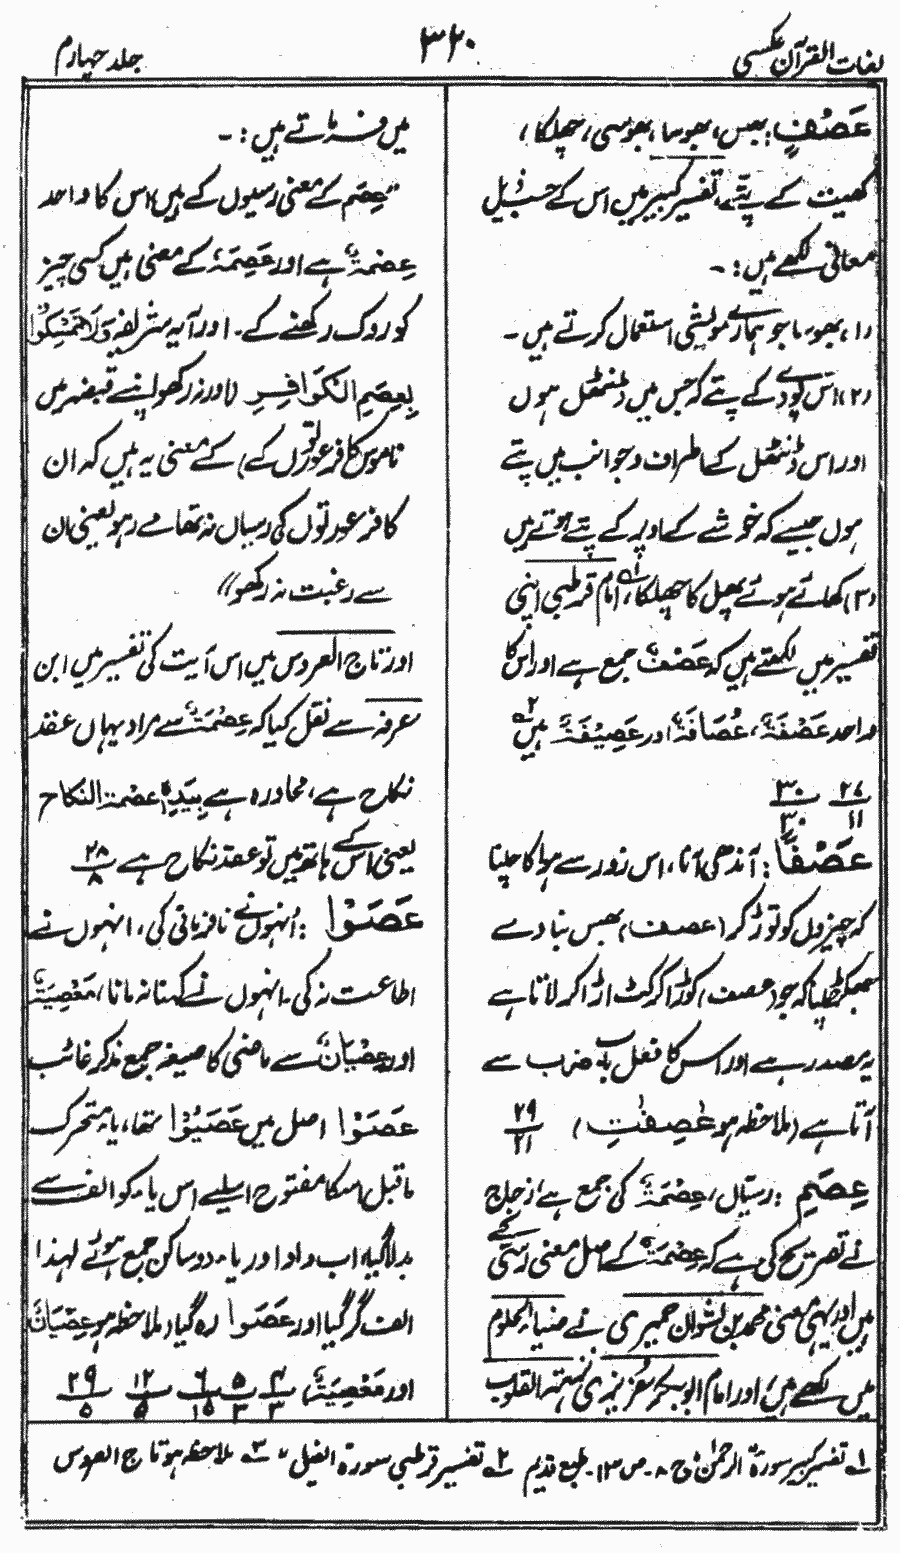 لغات القرآن عکسی
۳۲۰
جلد چہارم
عَصْفٍ: بھس، بھوسا، بھوسی، چھلکا،
کھیت کے پتے، تفسیر کبیر میں اس کے حسب ذیل
معانی لکھے ہیں :۔
(۱) بھوسا جو ہمارے مویشی استعمال کرتے ہیں۔
(۲) اس پودے کے پتے کہ جس میں ڈنٹھل ہوں
اور اس ڈنٹھل کے اطراف و جوانب میں پتے
ہوں جیسے کہ خوشے کے اوپر کے پتے ہوتے ہیں
(۳) کھائے ہوئے پھل کا چھلکا،۱ امام قرطبی اپنی
تفسیر میں لکھتے ہیں کہ عَصْفٌ جمع ہے اور اس کا
واحد عَصْفَةٌ، عُصَافَةٌ اور عَصِیْفَةٌ ہیں ۲
۲۷/۱۱ ۳۰/۳۰
عَصْفًا: آندھی آنا، اس زور سے ہوا کا چلنا
کہ چیزوں کو توڑ کر (عصف) بھس بنا دے
جھکڑ چلنا کہ جو (عصف) کوڑا کرکٹ اڑا کر لاتا ہے
یہ مصدر ہے اور اس کا فعل باب ضرب سے
آتا ہے (ملاحظہ ہو عٰصِفٰتِ) ۲۹/۲۱
عِصَمِ: رسیاں، عِصْمَةٌ کی جمع ہے، زجاج
نے تصریح کی ہے کہ عِصْمَةٌ کے اصل معنی رسی کے
ہیں اور یہی معنی محمد بن نشوان حمیری نے ضیاء الحلوم
میں لکھے ہیں، اور امام ابوبکر عزیزی نزہۃ القلوب
میں فرماتے ہیں :۔
"عِصَم کے معنی رسیوں کے ہیں، اس کا واحد
عِصْمَةٌ ہے اور عَصِمَةٌ کے معنی ہیں کسی چیز
کو روک رکھنے کے۔ اور آیہ شریفہ وَلَا تُمْسِكُوْا
بِعِصَمِ الْكَوَافِرِ (اور نہ رکھو اپنے قبضہ میں
ناموس کافر عورتوں کے) کے معنی یہ ہیں کہ ان
کافر عورتوں کی رسیاں نہ تھامے رہو یعنی ان
سے رغبت نہ رکھو"
اور تاج العروس میں اس آیت کی تفسیر میں ابن
عرفہ سے نقل کیا کہ عِصْمَةٌ سے مراد یہاں عقد
نکاح ہے، محاورہ ہے بِیَدِہٖ عصمۃ النکاح
یعنی اس کے ہاتھ میں تو عقد نکاح ہے ۲۸/۸
عَصَوْا: اُنہوں نے نافرمانی کی، انہوں نے
اطاعت نہ کی۔ انہوں نے کہنا نہ مانا، مَعْصِیَةٌ
اور عِصْیَانٌ سے ماضی کا صیغہ جمع مذکر غائب
عَصَوْا اصل میں عَصَیُوْا تھا، یاء متحرک
ماقبل اسکا مفتوح اسلیے اس یاء کو الف سے
بدلا گیا، اب واو اور یاء دو ساکن جمع ہوئے لہذا
الف گر گیا اور عَصَوا رہ گیا (ملاحظہ ہو عِصْیَانٌ
اور مَعْصِیَةٌ) ۴/۳ ۵/۳ ۶/۱۵ ۱۲/۵ ۲۹/۵
۱؎ تفسیر کبیر سورۃ الرحمٰن ج ۸۔ ص ۱۳۔ طبع قدیم ۲؎ تفسیر قرطبی سورۃ الفیل " ۳؎ ملاحظہ ہو تاج العروس